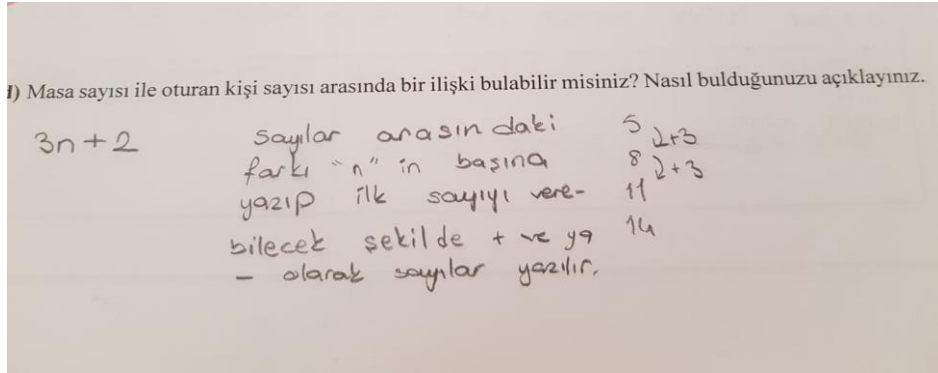 d) Masa sayısı ile oturan kişi sayısı arasında bir ilişki bulabilir misiniz? Nasıl bulduğunuzu açıklayınız.
3n+2
Sayılar arasındaki
farkı "n" in başına
yazıp ilk sayıyı vere-
bilecek şekilde + ve ya
- olarak sayılar yazılır.
5
8
11
14
2+3
2+3